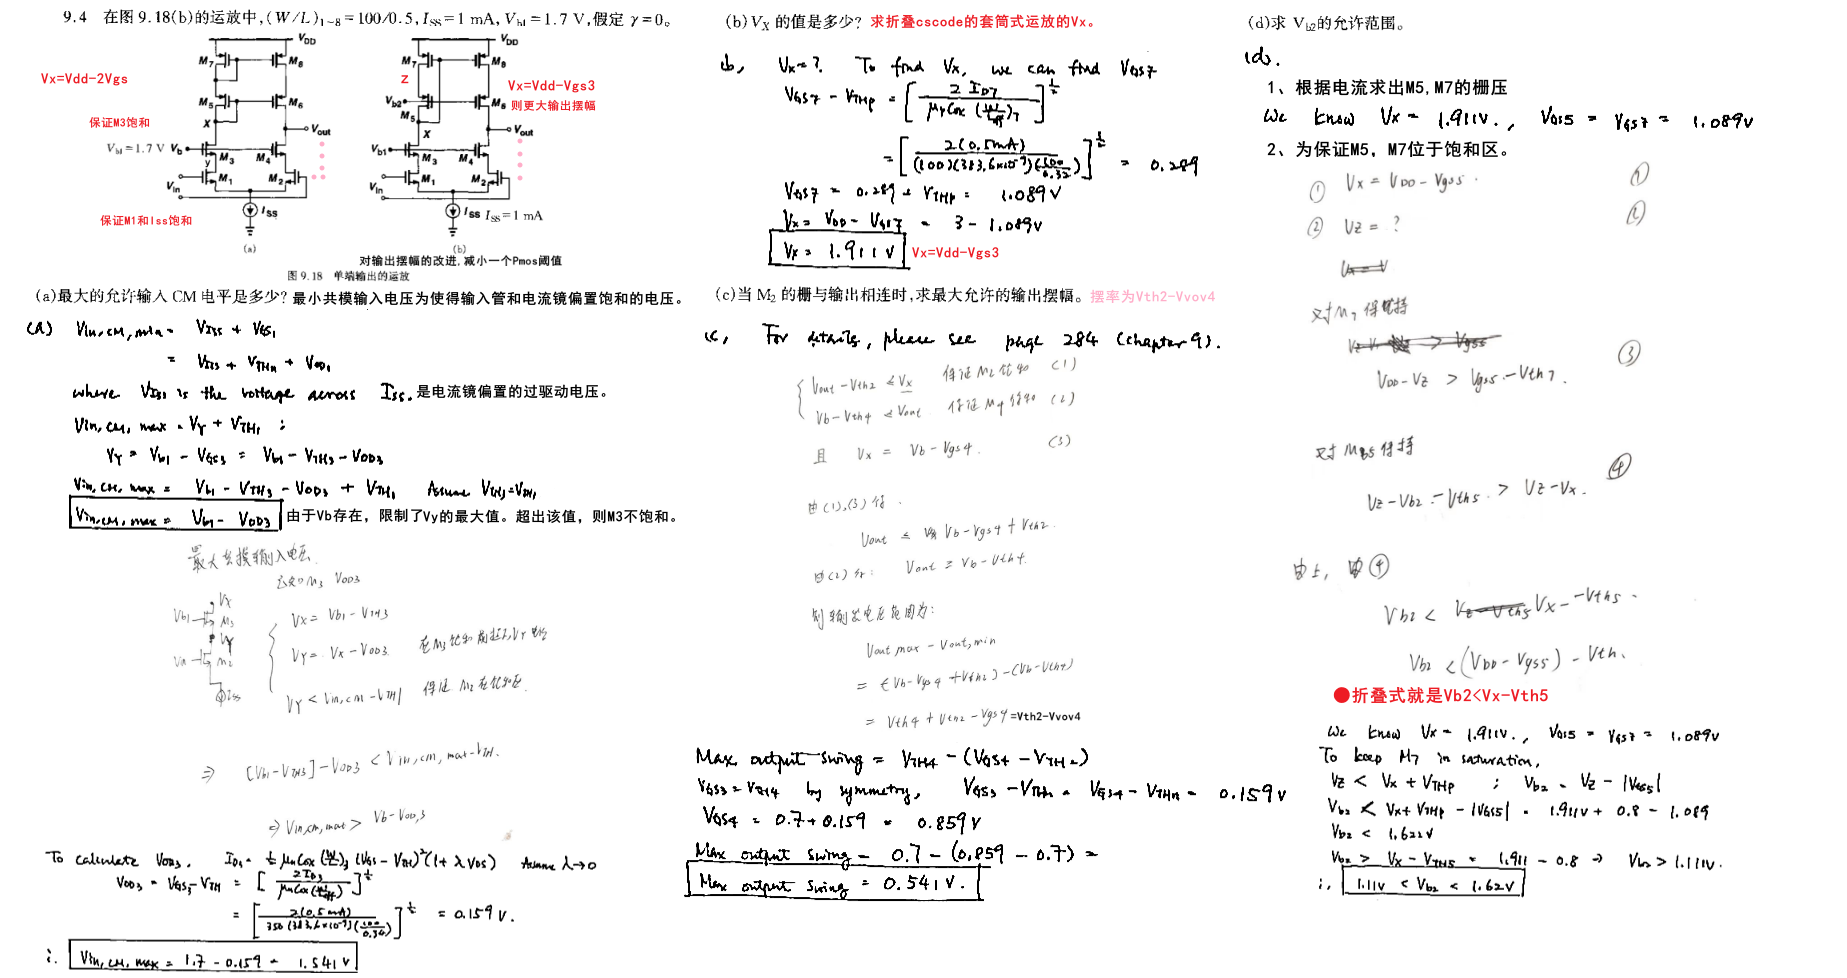 9.4 在图 9.18(b)的运放中,(W/L)₁₋₈=100/0.5, I_SS=1 mA, V_b1=1.7 V,假定 γ=0。
Vx=Vdd-2Vgs
保证M3饱和
V_b1=1.7 V
保证M1和Iss饱和
V_DD
M₇
M₈
M₅
M₆
X
V_out
V_b
M₃
M₄
y
M₁
M₂
V_in
V_in
I_SS
(a)
V_DD
M₇
M₈
Z
Vx=Vdd-Vgs3
则更大输出摆幅
V_b2
M₅
M₆
X
V_out
V_b1
M₃
M₄
M₁
M₂
V_in
V_in
I_SS I_SS=1 mA
(b)
对输出摆幅的改进,减小一个Pmos阈值
图 9.18 单端输出的运放
(a)最大的允许输入 CM 电平是多少? 最小共模输入电压为使得输入管和电流镜偏置饱和的电压。
(a) Vin,CM,min = V_ISS + V_GS1
= V_ISS + V_THn + V_OD1
where V_ISS is the voltage across I_SS. 是电流镜偏置的过驱动电压。
Vin,CM,max = V_Y + V_TH1 ;
V_Y = V_b1 - V_GS3 = V_b1 - V_TH3 - V_OD3
Vin,CM,max = V_b1 - V_TH3 - V_OD3 + V_TH1 Assume V_TH3=V_TH1
Vin,CM,max = V_b1 - V_OD3 由于Vb存在，限制了Vy的最大值。超出该值，则M3不饱和。
最大共模输入电压
M3 VOD3
Vx
Vb1
M3
Vy
M2
Iss
Vx = Vb1 - VTH3
VY = Vx - VOD3
VY < Vin,CM - VTH1 保证 M2 在饱和区
⇒ [Vb1-VTH3]-VOD3 < Vin,cm,max-VTH.
⇒ Vin,cm,max > Vb-VOD,3
To calculate V_OD3, I_D3 = ½ μnCox (W/L)₃ (V_GS - V_TH)² (1+λV_DS) Assume λ→0
V_OD3 = V_GS3-V_TH = [2I_D3 / μnCox(W/Leff)]^½
= [2(0.5mA) / 350(383.6×10⁻⁹)(100/0.34)]^½ = 0.159 V.
∴ Vin,CM,max = 1.7 - 0.159 = 1.541 V
(b) V_X 的值是多少? 求折叠cscode的套筒式运放的Vx。
b, Vx=?. To find Vx, we can find V_GS7
V_GS7 - V_THp = [2 I_D7 / μpCox (W/Leff)₇]^½
= [2(0.5mA) / (100)(383.6×10⁻⁹)(100/0.32)]^½ = 0.289
V_GS7 = 0.289 + V_THp = 1.089V
Vx = V_DD - V_GS7 = 3 - 1.089V
Vx = 1.911 V Vx=Vdd-Vgs3
(c)当 M₂ 的栅与输出相连时,求最大允许的输出摆幅。 摆率为Vth2-Vvov4
c, For details, please see page 284 (chapter 9).
Vout - Vth2 ≤ Vx 保证M2饱和 (1)
Vb - Vth4 ≤ Vout 保证M4饱和 (2)
且 Vx = Vb - Vgs4. (3)
由(1),(3)得.
Vout ≤ Vb - Vgs4 + Vth2.
由(2)得: Vout ≥ Vb - Vth4.
则输出电压范围为:
Vout,max - Vout,min
= (Vb-Vgs4 +Vth2) - (Vb-Vth4)
= Vth4 + Vth2 - Vgs4=Vth2-Vvov4
Max output swing = V_TH4 - (V_GS4 - V_TH2)
V_GS3=V_GS4 by symmetry, V_GS3 - V_THn = V_GS4 - V_THn = 0.159V
V_GS4 = 0.7 + 0.159 = 0.859V
Max output swing = 0.7 - (0.859 - 0.7) =
Max output swing = 0.541 V.
(d)求 V_b2的允许范围。
(d).
1、根据电流求出M5,M7的栅压
We know Vx = 1.911V., V_GS5 = V_GS7 = 1.089V
2、为保证M5，M7位于饱和区。
① Vx = VDD - Vgs5. ①
② Vz = ? ②
对M7 保持
VDD-Vz > Vgs5-Vth7. ③
对M5 保持
Vz-Vb2-Vth5 > Vz-Vx. ④
由上, 由④
Vb2 < Vx-Vth5.
Vb2 < (VDD-Vgs5) - Vth.
●折叠式就是Vb2<Vx-Vth5
We know Vx = 1.911V., V_GS5 = V_GS7 = 1.089V
To keep M7 in saturation,
Vz < Vx + V_THp ; V_b2 = Vz - |V_GS5|
V_b2 < Vx + V_THp - |V_GS5| = 1.911V + 0.8 - 1.089
V_b2 < 1.622V
V_b2 > Vx - V_TH5 = 1.911 - 0.8 → V_b2 > 1.111V.
∴ 1.11V < V_b2 < 1.62V